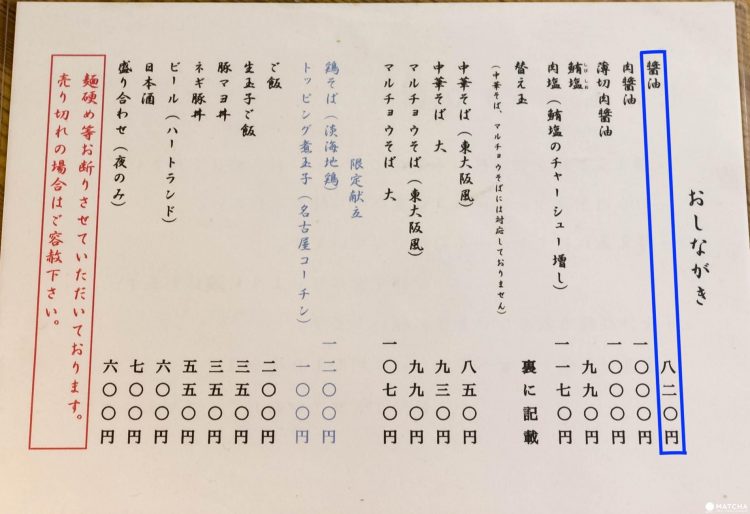 おしながき
醤油 八二〇円
肉醤油 一〇〇〇円
薄切肉醤油 一〇〇〇円
鮪塩 九九〇円
肉塩（鮪塩のチャーシュー増し） 一一七〇円
替え玉 裏に記載
（中華そば、マルチョウそばには対応しておりません）
中華そば（東大阪風） 八五〇円
中華そば 大 九三〇円
マルチョウそば（東大阪風） 九九〇円
マルチョウそば 大 一〇七〇円
限定献立
鶏そば（淡海地鶏） 一二〇〇円
トッピング煮玉子（名古屋コーチン） 一〇〇円
ご飯 二〇〇円
生玉子ご飯 三五〇円
豚マヨ丼 三五〇円
ネギ豚丼 五五〇円
ビール（ハートランド） 六〇〇円
日本酒 七〇〇円
盛り合わせ（夜のみ） 六〇〇円
麺硬め等お断りさせていただいております。
売り切れの場合はご容赦下さい。
MATCHA